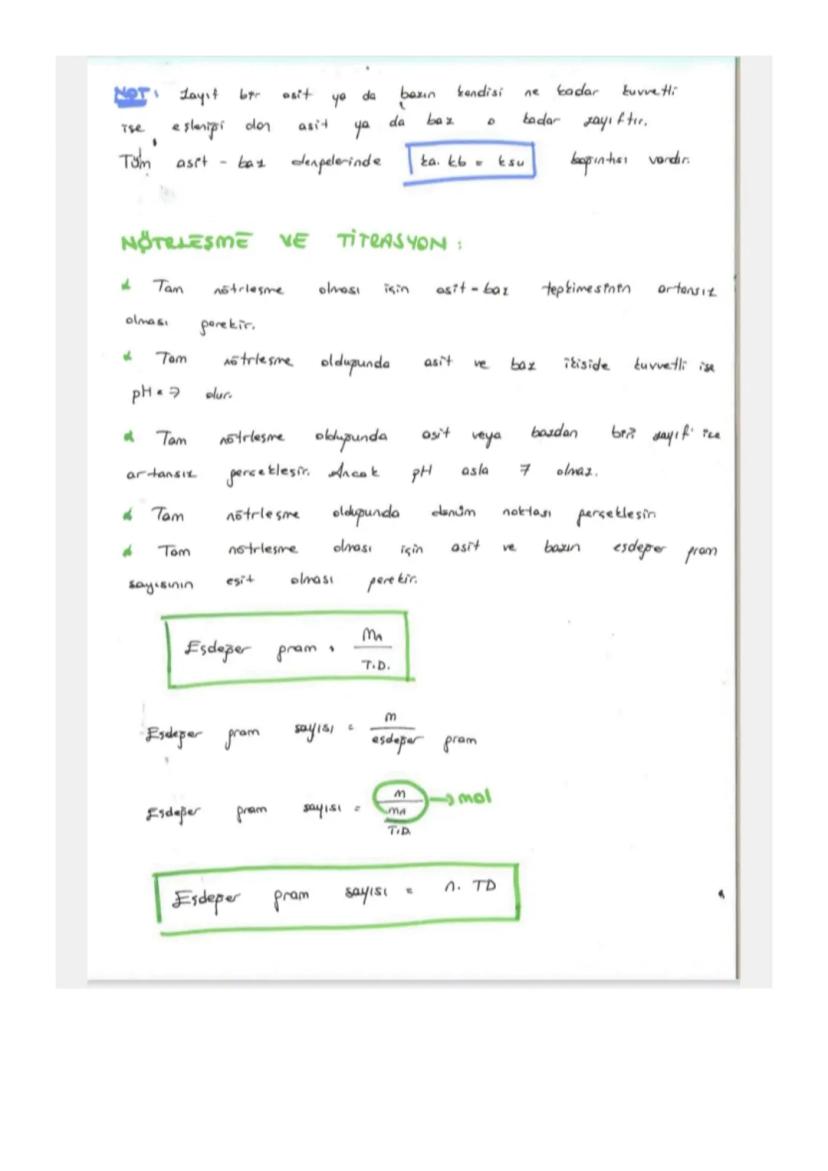 NOT: Zayıf bir asit ya da bazın kendisi ne kadar kuvvetli
ise eşleniği olan asit ya da baz o kadar zayıftır.
Tüm asit - baz dengelerinde ka. kb = ksu bağıntısı vardır.
NÖTRLEŞME VE TİTRASYON:
Tam nötrleşme olması için asit - baz tepkimesinin artansız
olması gerekir.
Tam nötrleşme olduğunda asit ve baz ikiside kuvvetli ise
pH = 7 olur.
Tam nötrleşme olduğunda asit veya bazdan biri zayıf ise
artansız gerçekleşir. Ancak pH asla 7 olmaz.
Tam nötrleşme olduğunda dönüm noktası gerçekleşir.
Tam nötrleşme olması için asit ve bazın eşdeğer gram
sayısının eşit olması gerekir.
Eşdeğer gram = MA
T.D.
Eşdeğer gram sayısı = m
eşdeğer gram
Eşdeğer gram sayısı = m → mol
MA
T.D.
Eşdeğer gram sayısı = n. TD